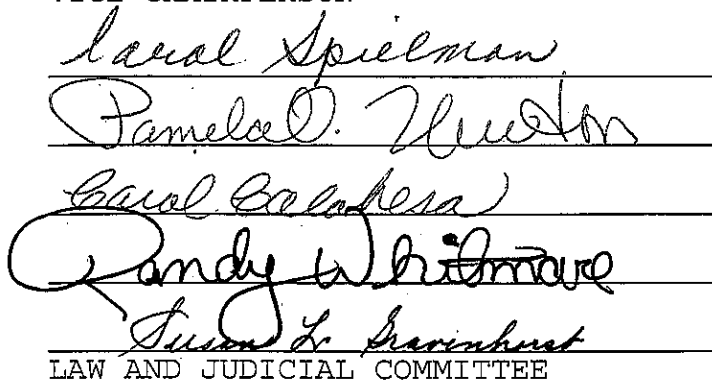 VICE CHAIRPERSON
Carol Spielman
Pamela O. Newton
Carol Calabresa
Randy Whitmore
Susan L. Gravenhorst
LAW AND JUDICIAL COMMITTEE